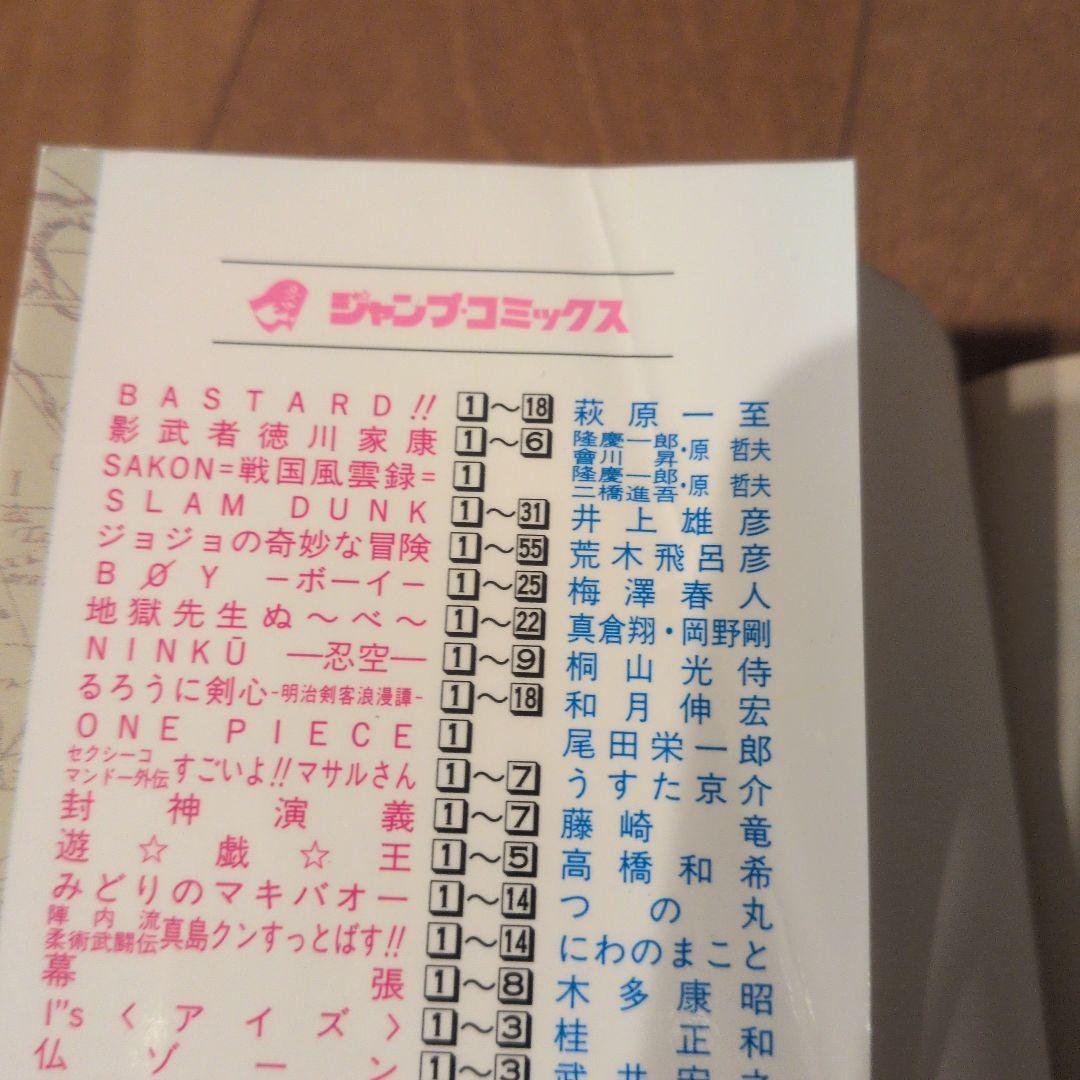 ジャンプ・コミックス
BASTARD!! 1〜18 萩原一至
影武者徳川家康 1〜6 隆慶一郎・會川昇・原哲夫
SAKON=戦国風雲録= 1 隆慶一郎・二橋進吾・原哲夫
SLAM DUNK 1〜31 井上雄彦
ジョジョの奇妙な冒険 1〜55 荒木飛呂彦
BØY －ボーイ－ 1〜25 梅澤春人
地獄先生ぬ〜べ〜 1〜22 真倉翔・岡野剛
NINKŪ ―忍空― 1〜9 桐山光侍
るろうに剣心-明治剣客浪漫譚- 1〜18 和月伸宏
ONE PIECE 1 尾田栄一郎
セクシーコマンドー外伝すごいよ!!マサルさん 1〜7 うすた京介
封神演義 1〜7 藤崎竜
遊☆戯☆王 1〜5 高橋和希
みどりのマキバオー 1〜14 つの丸
陣内流柔術武闘伝真島クンすっとばす!! 1〜14 にわのまこと
幕張 1〜8 木多康昭
I"s〈アイズ〉 1〜3 桂正和
仏ゾーン 1〜3 武井宏之